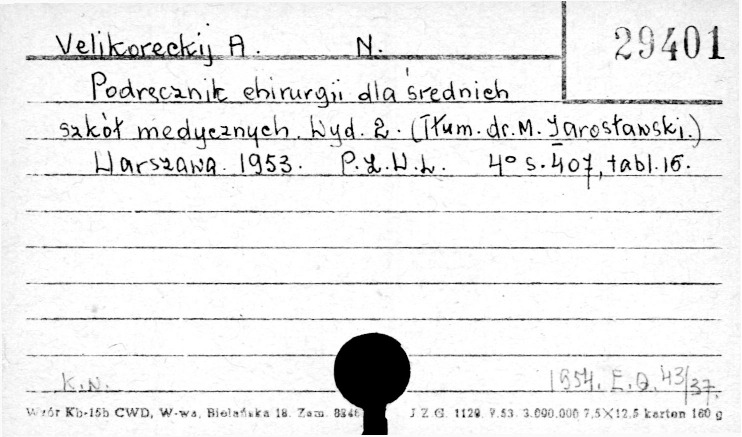 Velikoreckij A. N. 29401
Podręcznik chirurgii dla średnich
szkół medycznych. Wyd. 2. (Tłum. dr. M. Jarosławski.)
Warszawa. 1953. P.Z.W.L. 4° s. 407, tabl. 16.
K.N. 1954. E.Q. 43/37.
Wzór Kb-15b CWD, W-wa, Bielańska 18. Zam. J Z G. 1129. 9.53. 3.000.000 7,5×12,5 karton 160 g